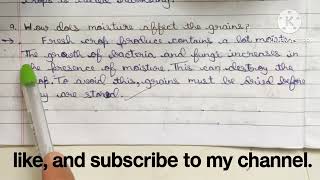 9. How does moisture affect the grains?
→ Fresh crop produce contains a lot moistr.
The growth of bacteria and fungi increases in
the presence of moisture. This can destroy the
crop. To avoid this, grains must be dried before
ey are stored.
like, and subscribe to my channel.